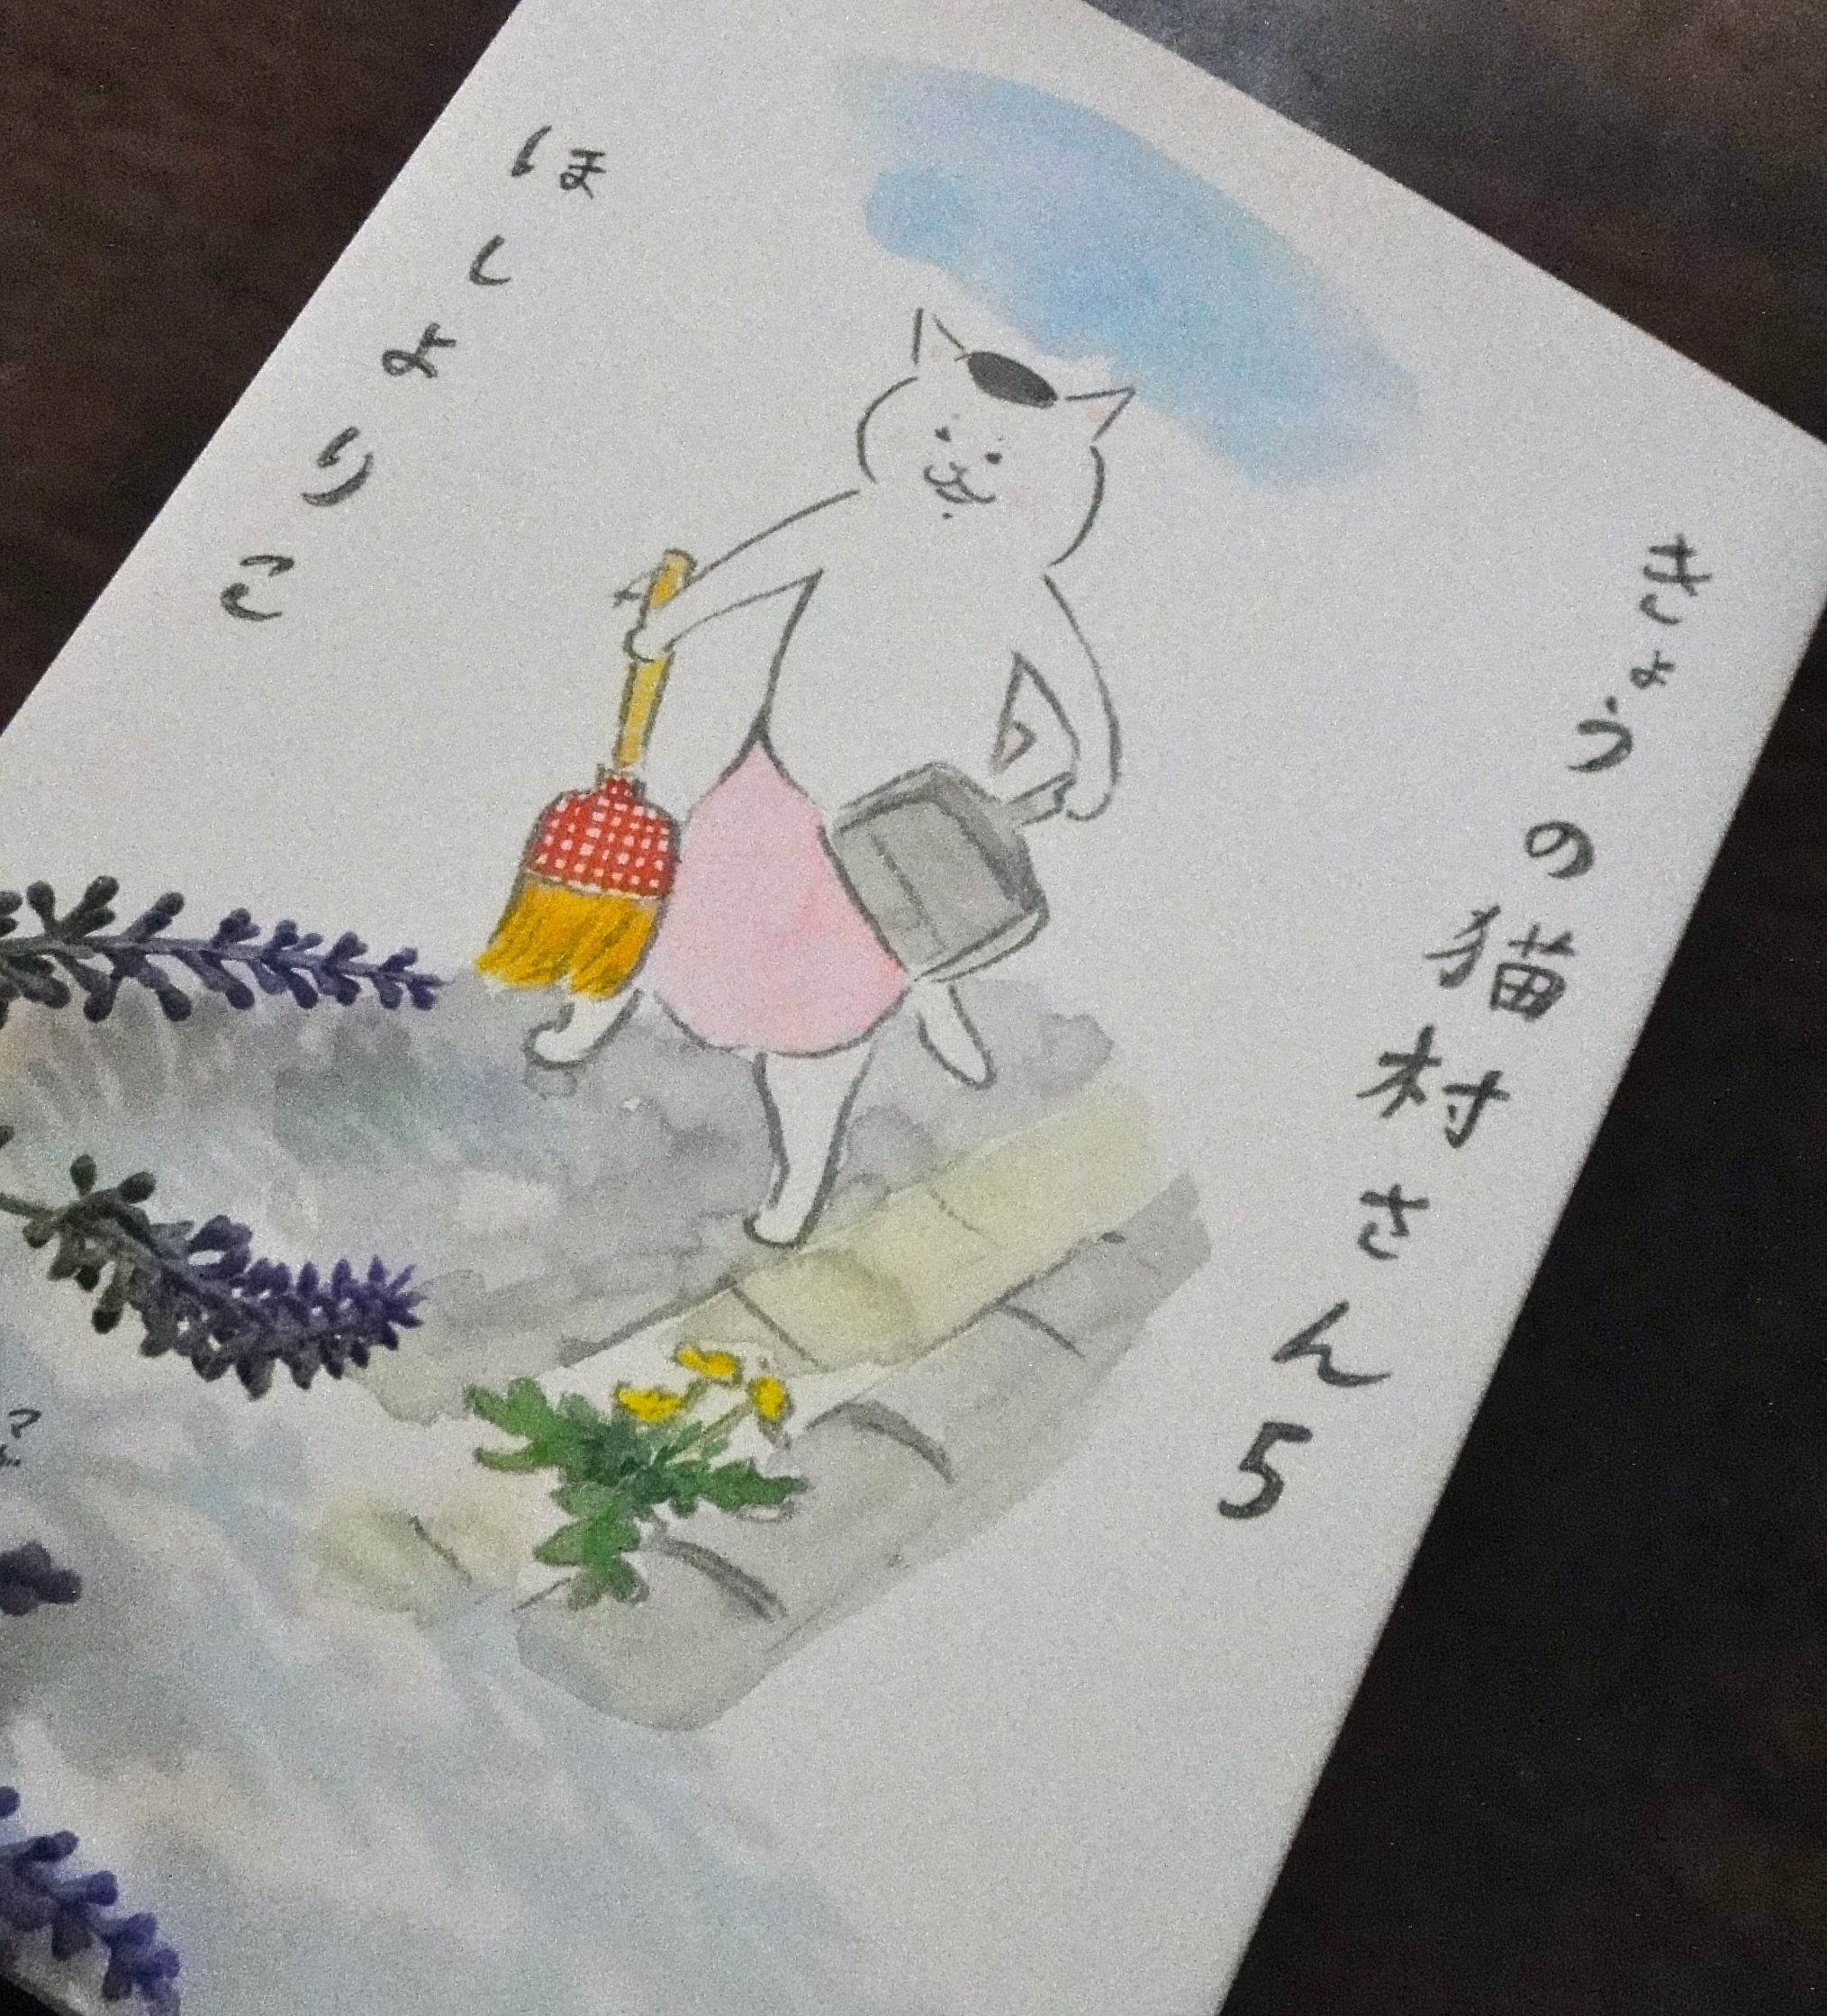 きょうの猫村さん5
ほしよりこ